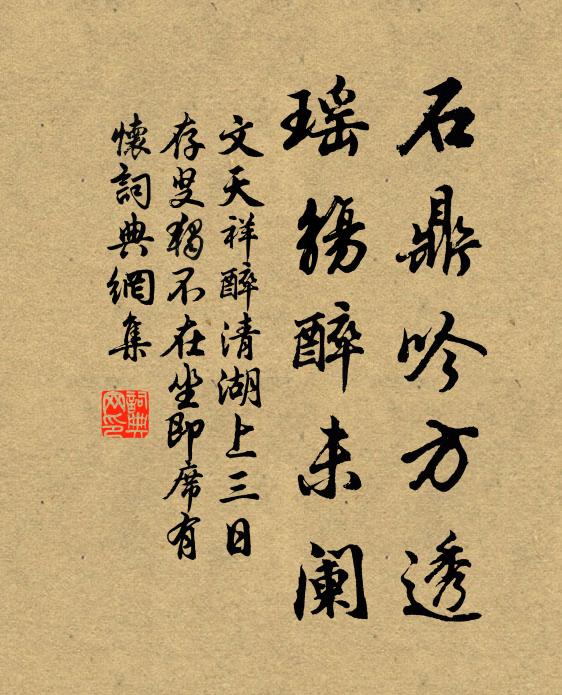 石鼎吟方透
瑶觴醉未阑
文天祥醉清湖上三日
存叟獨不在坐即席有
懷詞典網集
詞典網印